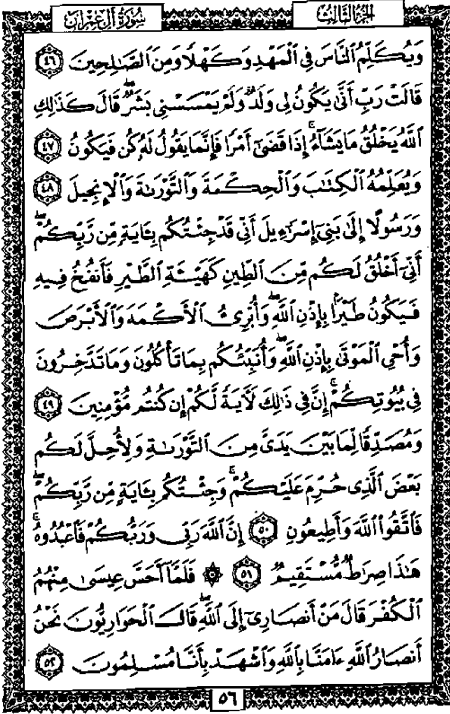 الجزء الثالث
سورة آل عمران
وَيُكَلِّمُ النَّاسَ فِي الْمَهْدِ وَكَهْلًا وَمِنَ الصَّالِحِينَ ٤٦
قَالَتْ رَبِّ أَنَّىٰ يَكُونُ لِي وَلَدٌ وَلَمْ يَمْسَسْنِي بَشَرٌ قَالَ كَذَٰلِكِ
اللَّهُ يَخْلُقُ مَا يَشَاءُ إِذَا قَضَىٰ أَمْرًا فَإِنَّمَا يَقُولُ لَهُ كُن فَيَكُونُ ٤٧
وَيُعَلِّمُهُ الْكِتَٰبَ وَالْحِكْمَةَ وَالتَّوْرَىٰةَ وَالْإِنجِيلَ ٤٨
وَرَسُولًا إِلَىٰ بَنِي إِسْرَٰءِيلَ أَنِّي قَدْ جِئْتُكُم بِـَٔايَةٍ مِّن رَّبِّكُمْ
أَنِّي أَخْلُقُ لَكُم مِّنَ الطِّينِ كَهَيْـَٔةِ الطَّيْرِ فَأَنفُخُ فِيهِ
فَيَكُونُ طَيْرًا بِإِذْنِ اللَّهِ وَأُبْرِئُ الْأَكْمَهَ وَالْأَبْرَصَ
وَأُحْيِ الْمَوْتَىٰ بِإِذْنِ اللَّهِ وَأُنَبِّئُكُم بِمَا تَأْكُلُونَ وَمَا تَدَّخِرُونَ
فِي بُيُوتِكُمْ إِنَّ فِي ذَٰلِكَ لَـَٔايَةً لَّكُمْ إِن كُنتُم مُّؤْمِنِينَ ٤٩
وَمُصَدِّقًا لِّمَا بَيْنَ يَدَيَّ مِنَ التَّوْرَىٰةِ وَلِأُحِلَّ لَكُم
بَعْضَ الَّذِي حُرِّمَ عَلَيْكُمْ وَجِئْتُكُم بِـَٔايَةٍ مِّن رَّبِّكُمْ
فَاتَّقُوا اللَّهَ وَأَطِيعُونِ ٥٠ إِنَّ اللَّهَ رَبِّي وَرَبُّكُمْ فَاعْبُدُوهُ
هَٰذَا صِرَٰطٌ مُّسْتَقِيمٌ ٥١ ۞ فَلَمَّا أَحَسَّ عِيسَىٰ مِنْهُمُ
الْكُفْرَ قَالَ مَنْ أَنصَارِي إِلَى اللَّهِ قَالَ الْحَوَارِيُّونَ نَحْنُ
أَنصَارُ اللَّهِ ءَامَنَّا بِاللَّهِ وَاشْهَدْ بِأَنَّا مُسْلِمُونَ ٥٢
٥٦